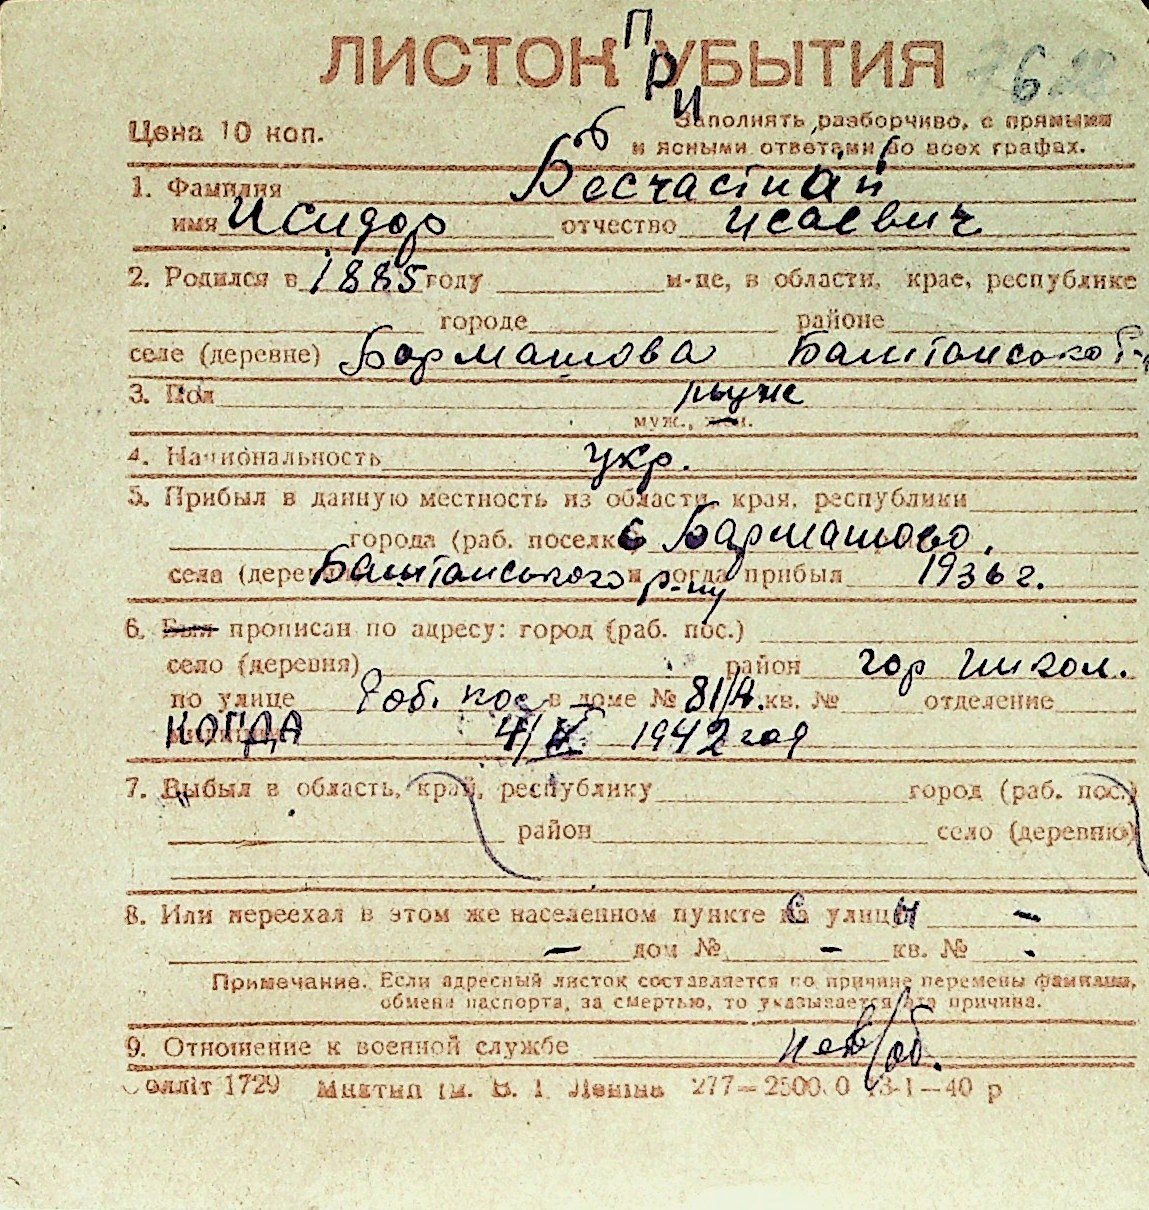 ЛИСТОК УБЫТИЯ
При
Цена 10 коп.
Заполнять разборчиво, с прямыми
и ясными ответами во всех графах.
1. Фамилия Бесчастный
имя Исидор отчество Исаевич
2. Родился в 1885 году м-це, в области, крае, республике
городе районе
селе (деревне) Бармашова Баштанського р-н
3. Пол муж
муж., жен.
4. Национальность укр.
5. Прибыл в данную местность из области, края, республики
города (раб. поселк с Бармашово,
села (дерев Баштанського р-ну и когда прибыл 1936 г.
6. Был прописан по адресу: город (раб. пос.)
село (деревня) район гор Никол.
по улице Роб. пос в доме № 81/А. кв. № отделение
КОГДА 4/V 1942 год
7. Выбыл в область, край, республику город (раб. пос.)
район село (деревню)
8. Или переехал в этом же населенном пункте с улицы –
– дом № – кв. № -
Примечание. Если адресный листок составляется по причине перемены фамилии,
обмена паспорта, за смертью, то указывается эта причина.
9. Отношение к военной службе нев/об.
лліт 1729 ім. В. І. Леніна 277—2500 3-1—40 р